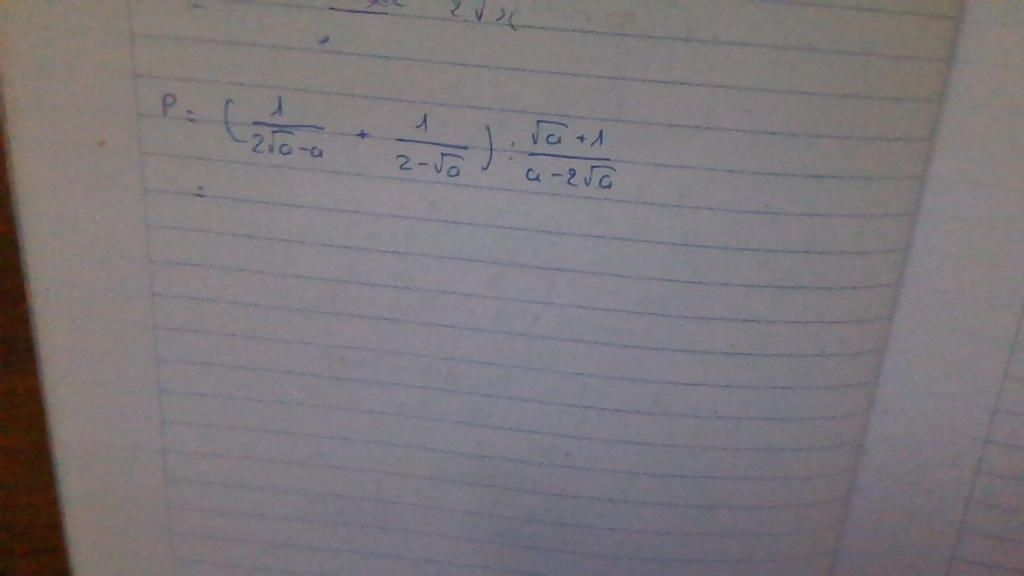 2√x
P = ( 1/(2√a-a) + 1/(2-√a) ) : (√a+1)/(a-2√a)
=